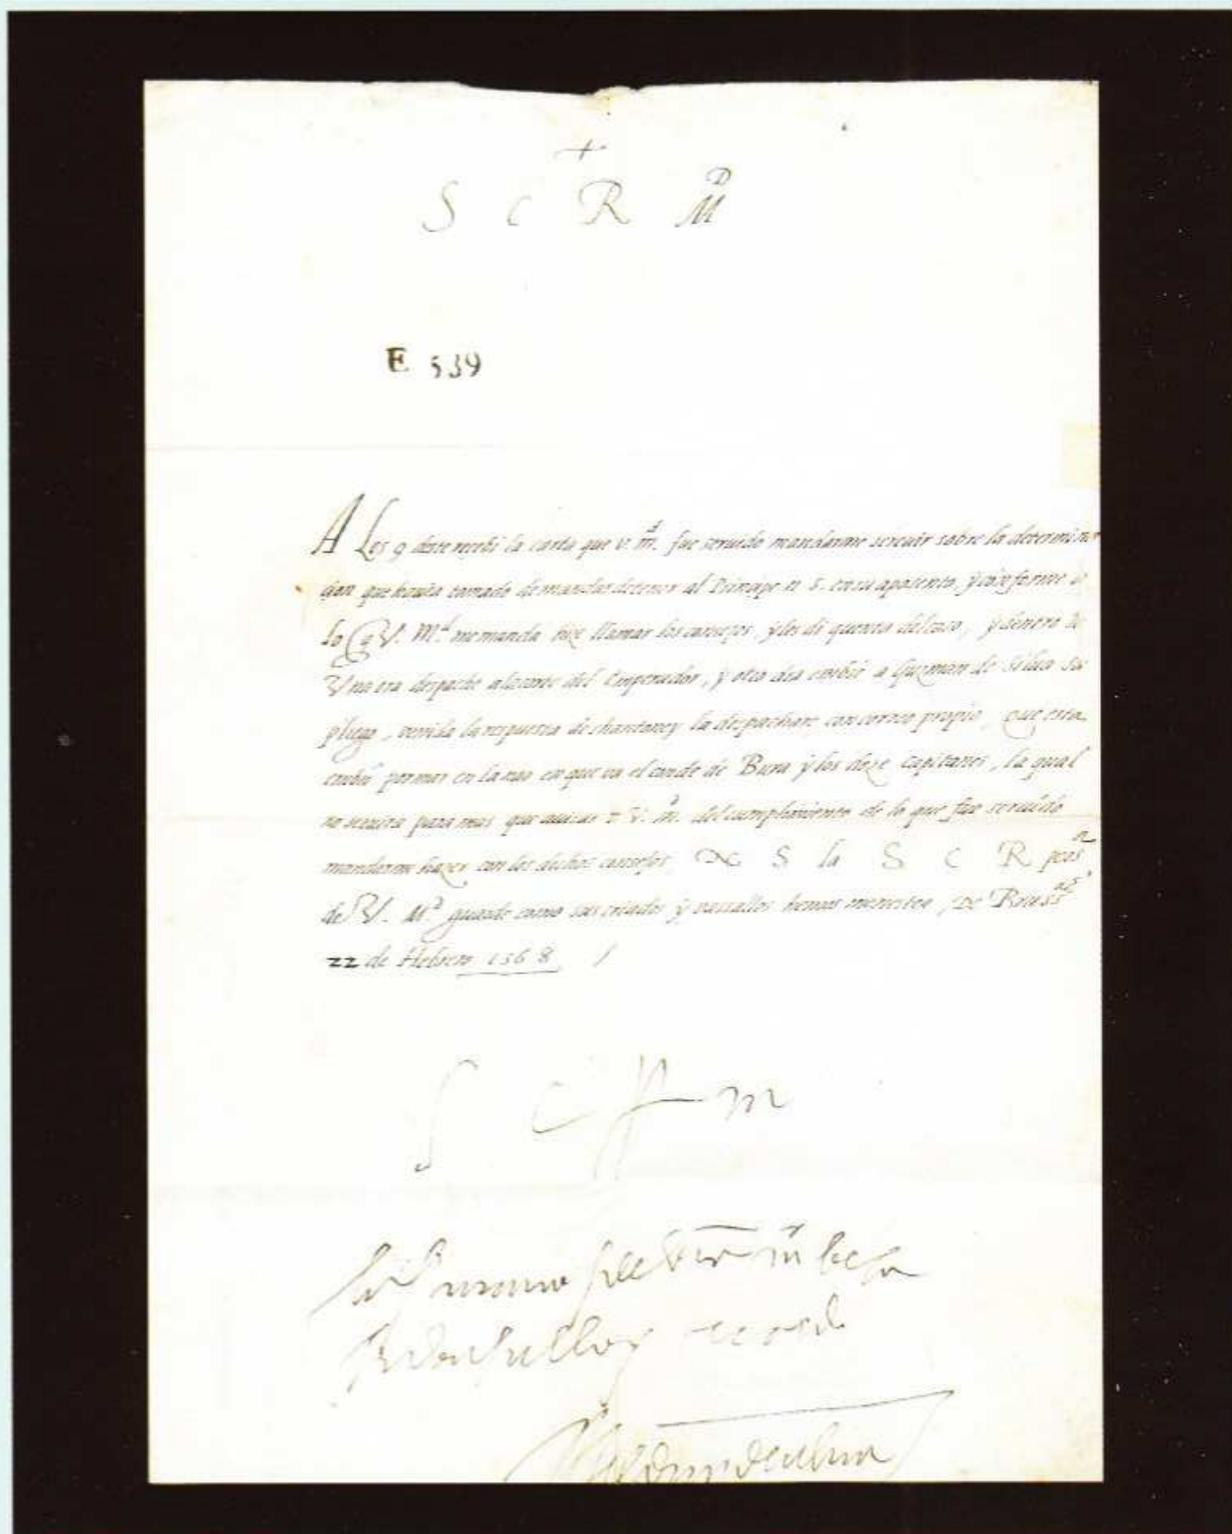 +
S C R M.ᵈ
E 539
A Los 9 deste recebi la carta que v. m.ᵈ fue seruido mandarme screuir sobre la determina
cion que hauia tomado de mandar detener al Principe n. s. en su aposento, y conforme a
lo q̃ V. M.ᵈ me manda hize llamar los consejos, y les di quenta del caso, y dentro de
Vna ora despache al del Emperador, y otro dia embie a Guzman de Silua su
pliego, venida la respuesta de chantoney la despachare con correo propio, que esta
embio por mar en la nao en que va el conde de Bura y los doze capitanes, la qual
no seruira para mas que auisar a V. m.ᵈ del cumplimiento de lo que fue seruido
mandarme hazer con los dichos consejos, N S la S C R pers.ᵃ
de V. M.ᵈ guarde como sus criados y vassallos hemos menester, De Brus.ᵃˢ
22 de Hebrero 1568 /
S C R m
las manos de vra m besa
su vassallo y criado
el duque dalua